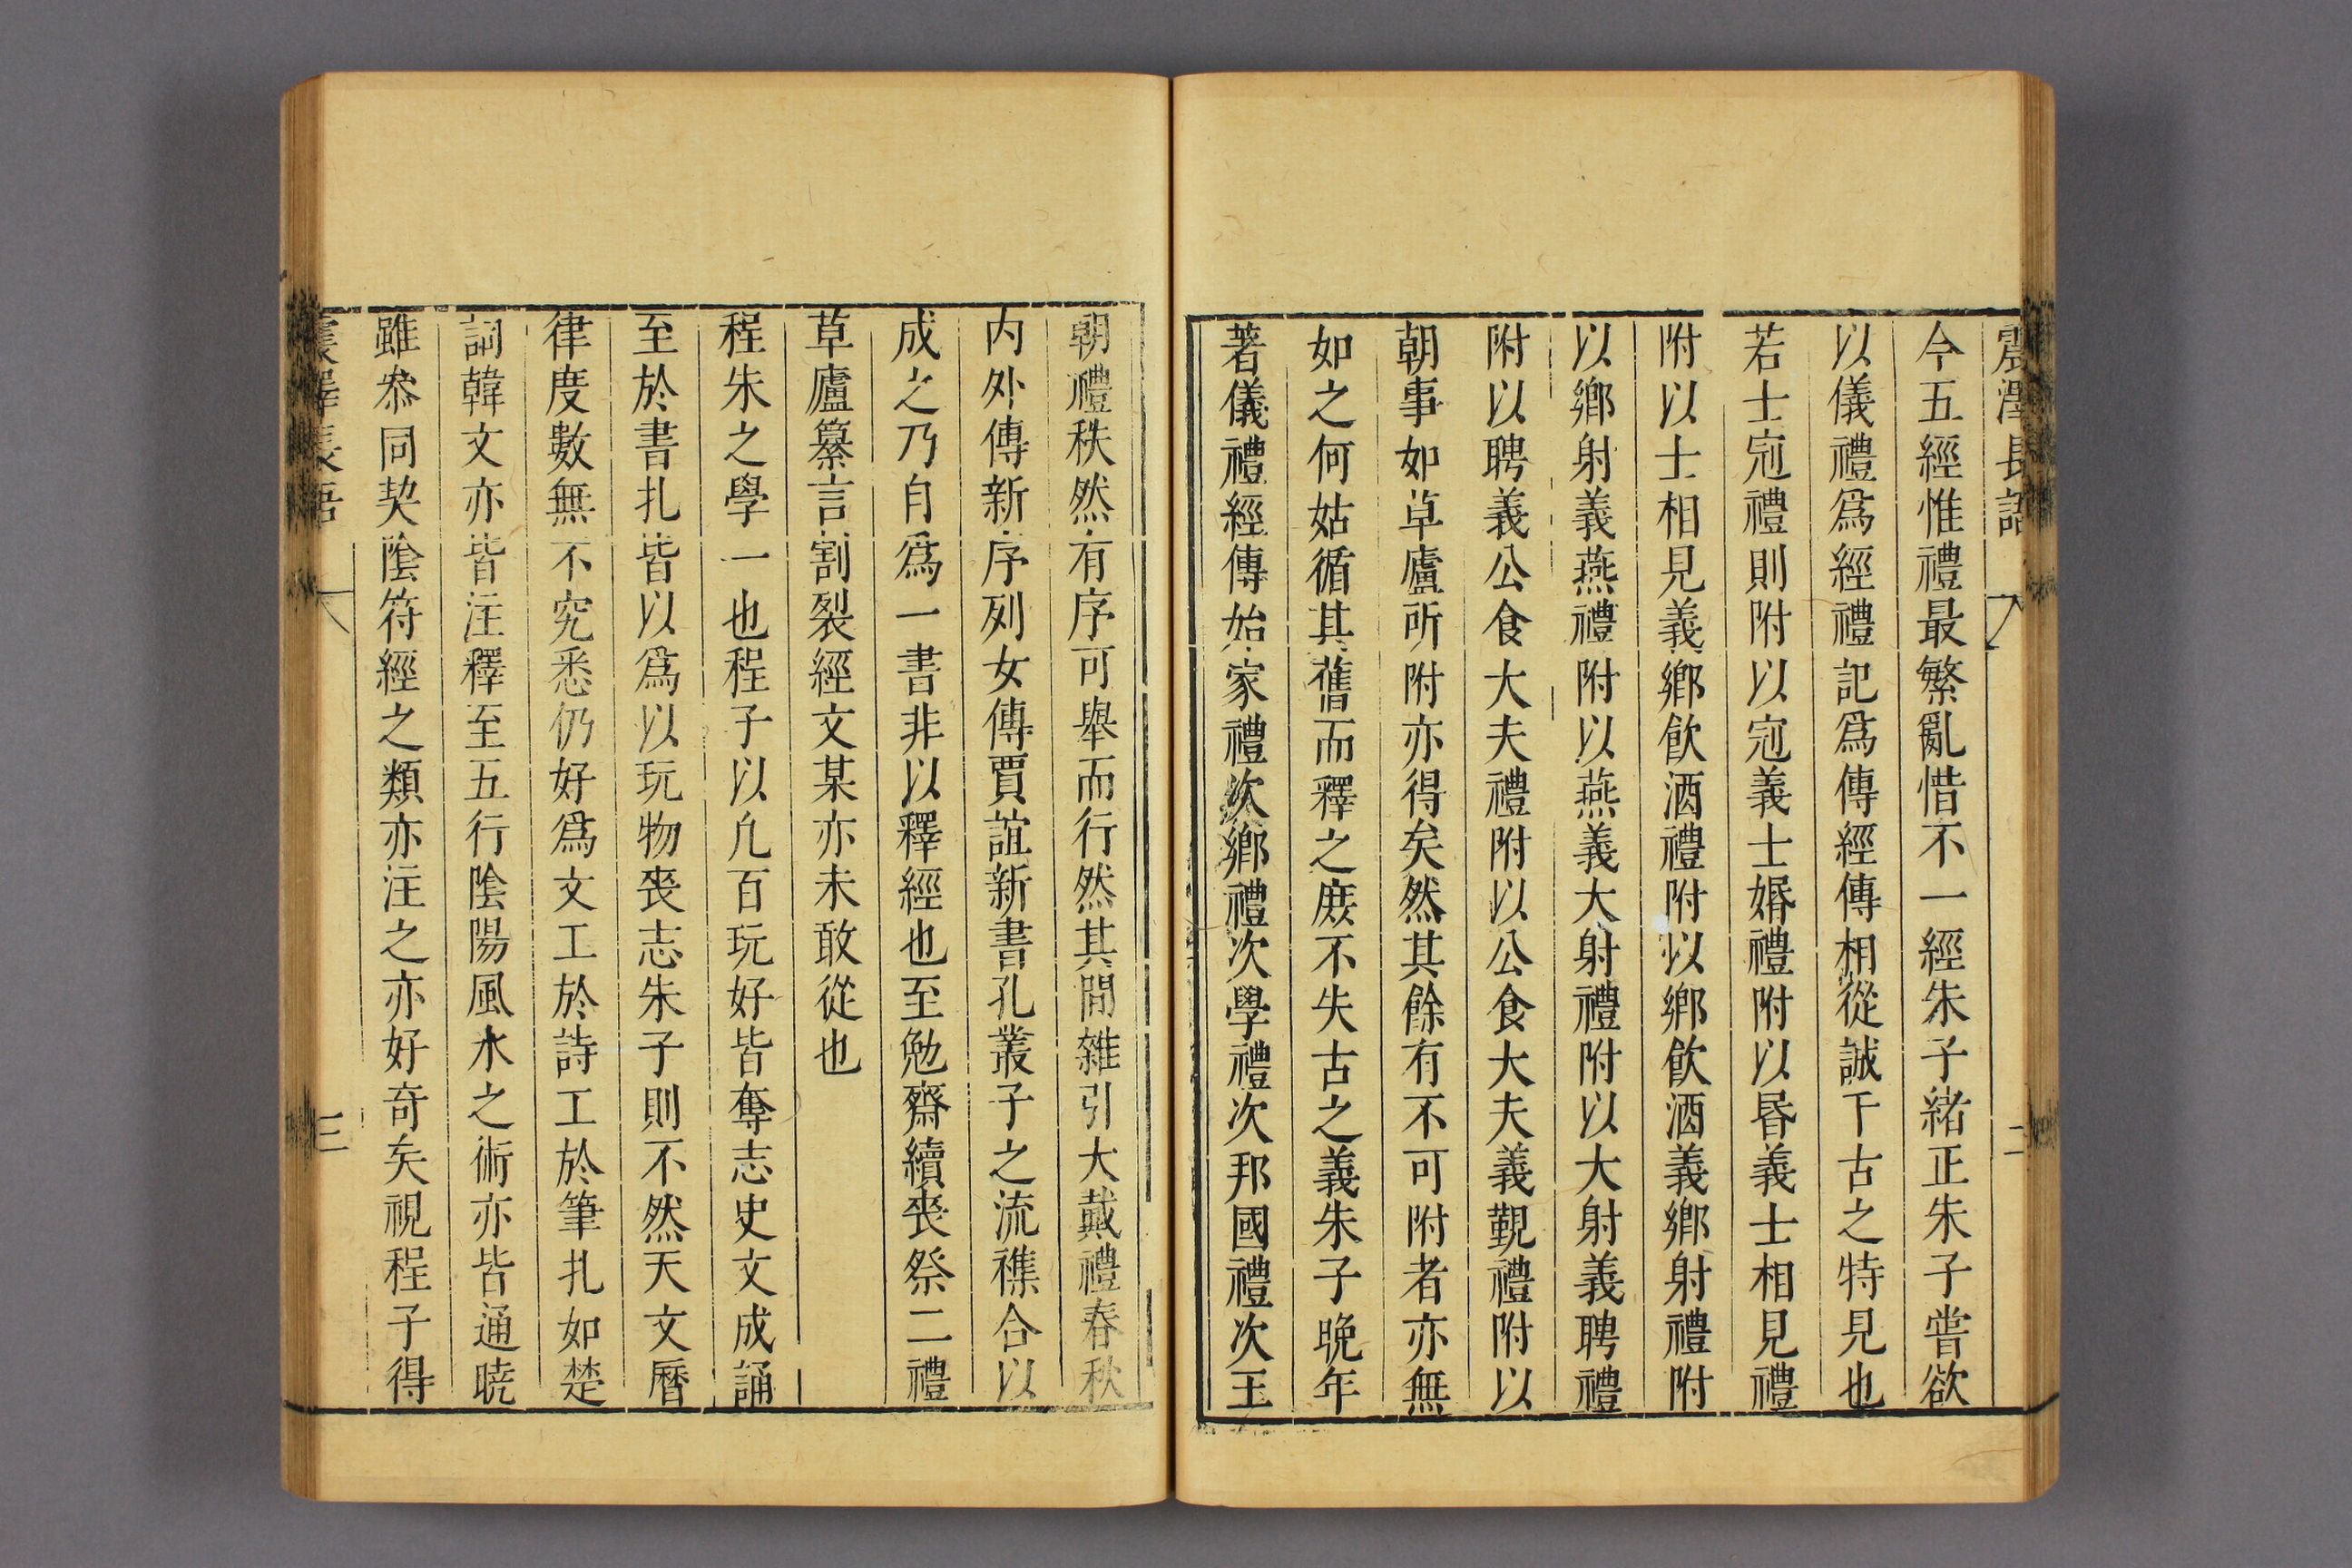 震澤長語
二
今五經惟禮最繁亂惜不一經朱子緒正朱子嘗欲
以儀禮爲經禮記爲傳經傳相從誠千古之特見也
若士𡨥禮則附以𡨥義士婚禮附以昬義士相見禮
附以士相見義鄉飲酒禮附以鄉飲酒義鄉射禮附
以鄉射義燕禮附以燕義大射禮附以大射義聘禮
附以聘義公食大夫禮附以公食大夫義覲禮附以
朝事如草廬所附亦得矣然其餘有不可附者亦無
如之何姑循其舊而釋之庻不失古之義朱子晩年
著儀禮經傳始家禮次鄉禮次學禮次邦國禮次王
朝禮秩然有序可舉而行然其間雜引大戴禮春秋
内外傳新序列女傳賈誼新書孔叢子之流襍合以
成之乃自爲一書非以釋經也至勉齋續喪祭二禮
草廬纂言割裂經文某亦未敢從也
程朱之學一也程子以凢百玩好皆奪志史文成誦
至於書扎皆以爲以玩物喪志朱子則不然天文曆
律度數無不究悉仍好爲文工於詩工於筆扎如楚
詞韓文亦皆注釋至五行陰陽風水之術亦皆通曉
雖叅同契陰符經之類亦注之亦好奇矣視程子得
震澤長語
三